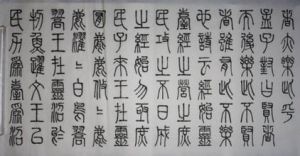 者亦樂此乎
孟子對曰賢者
而後樂此不賢
者雖有此不樂
也詩云經始靈
臺經之營之庶
民攻之不日成
之經始勿亟庶
民子來王在靈
囿麀鹿攸伏麀
鹿濯〻白鳥鶴
鶴王在靈沼於
牣魚躍文王以
民力為臺為沼